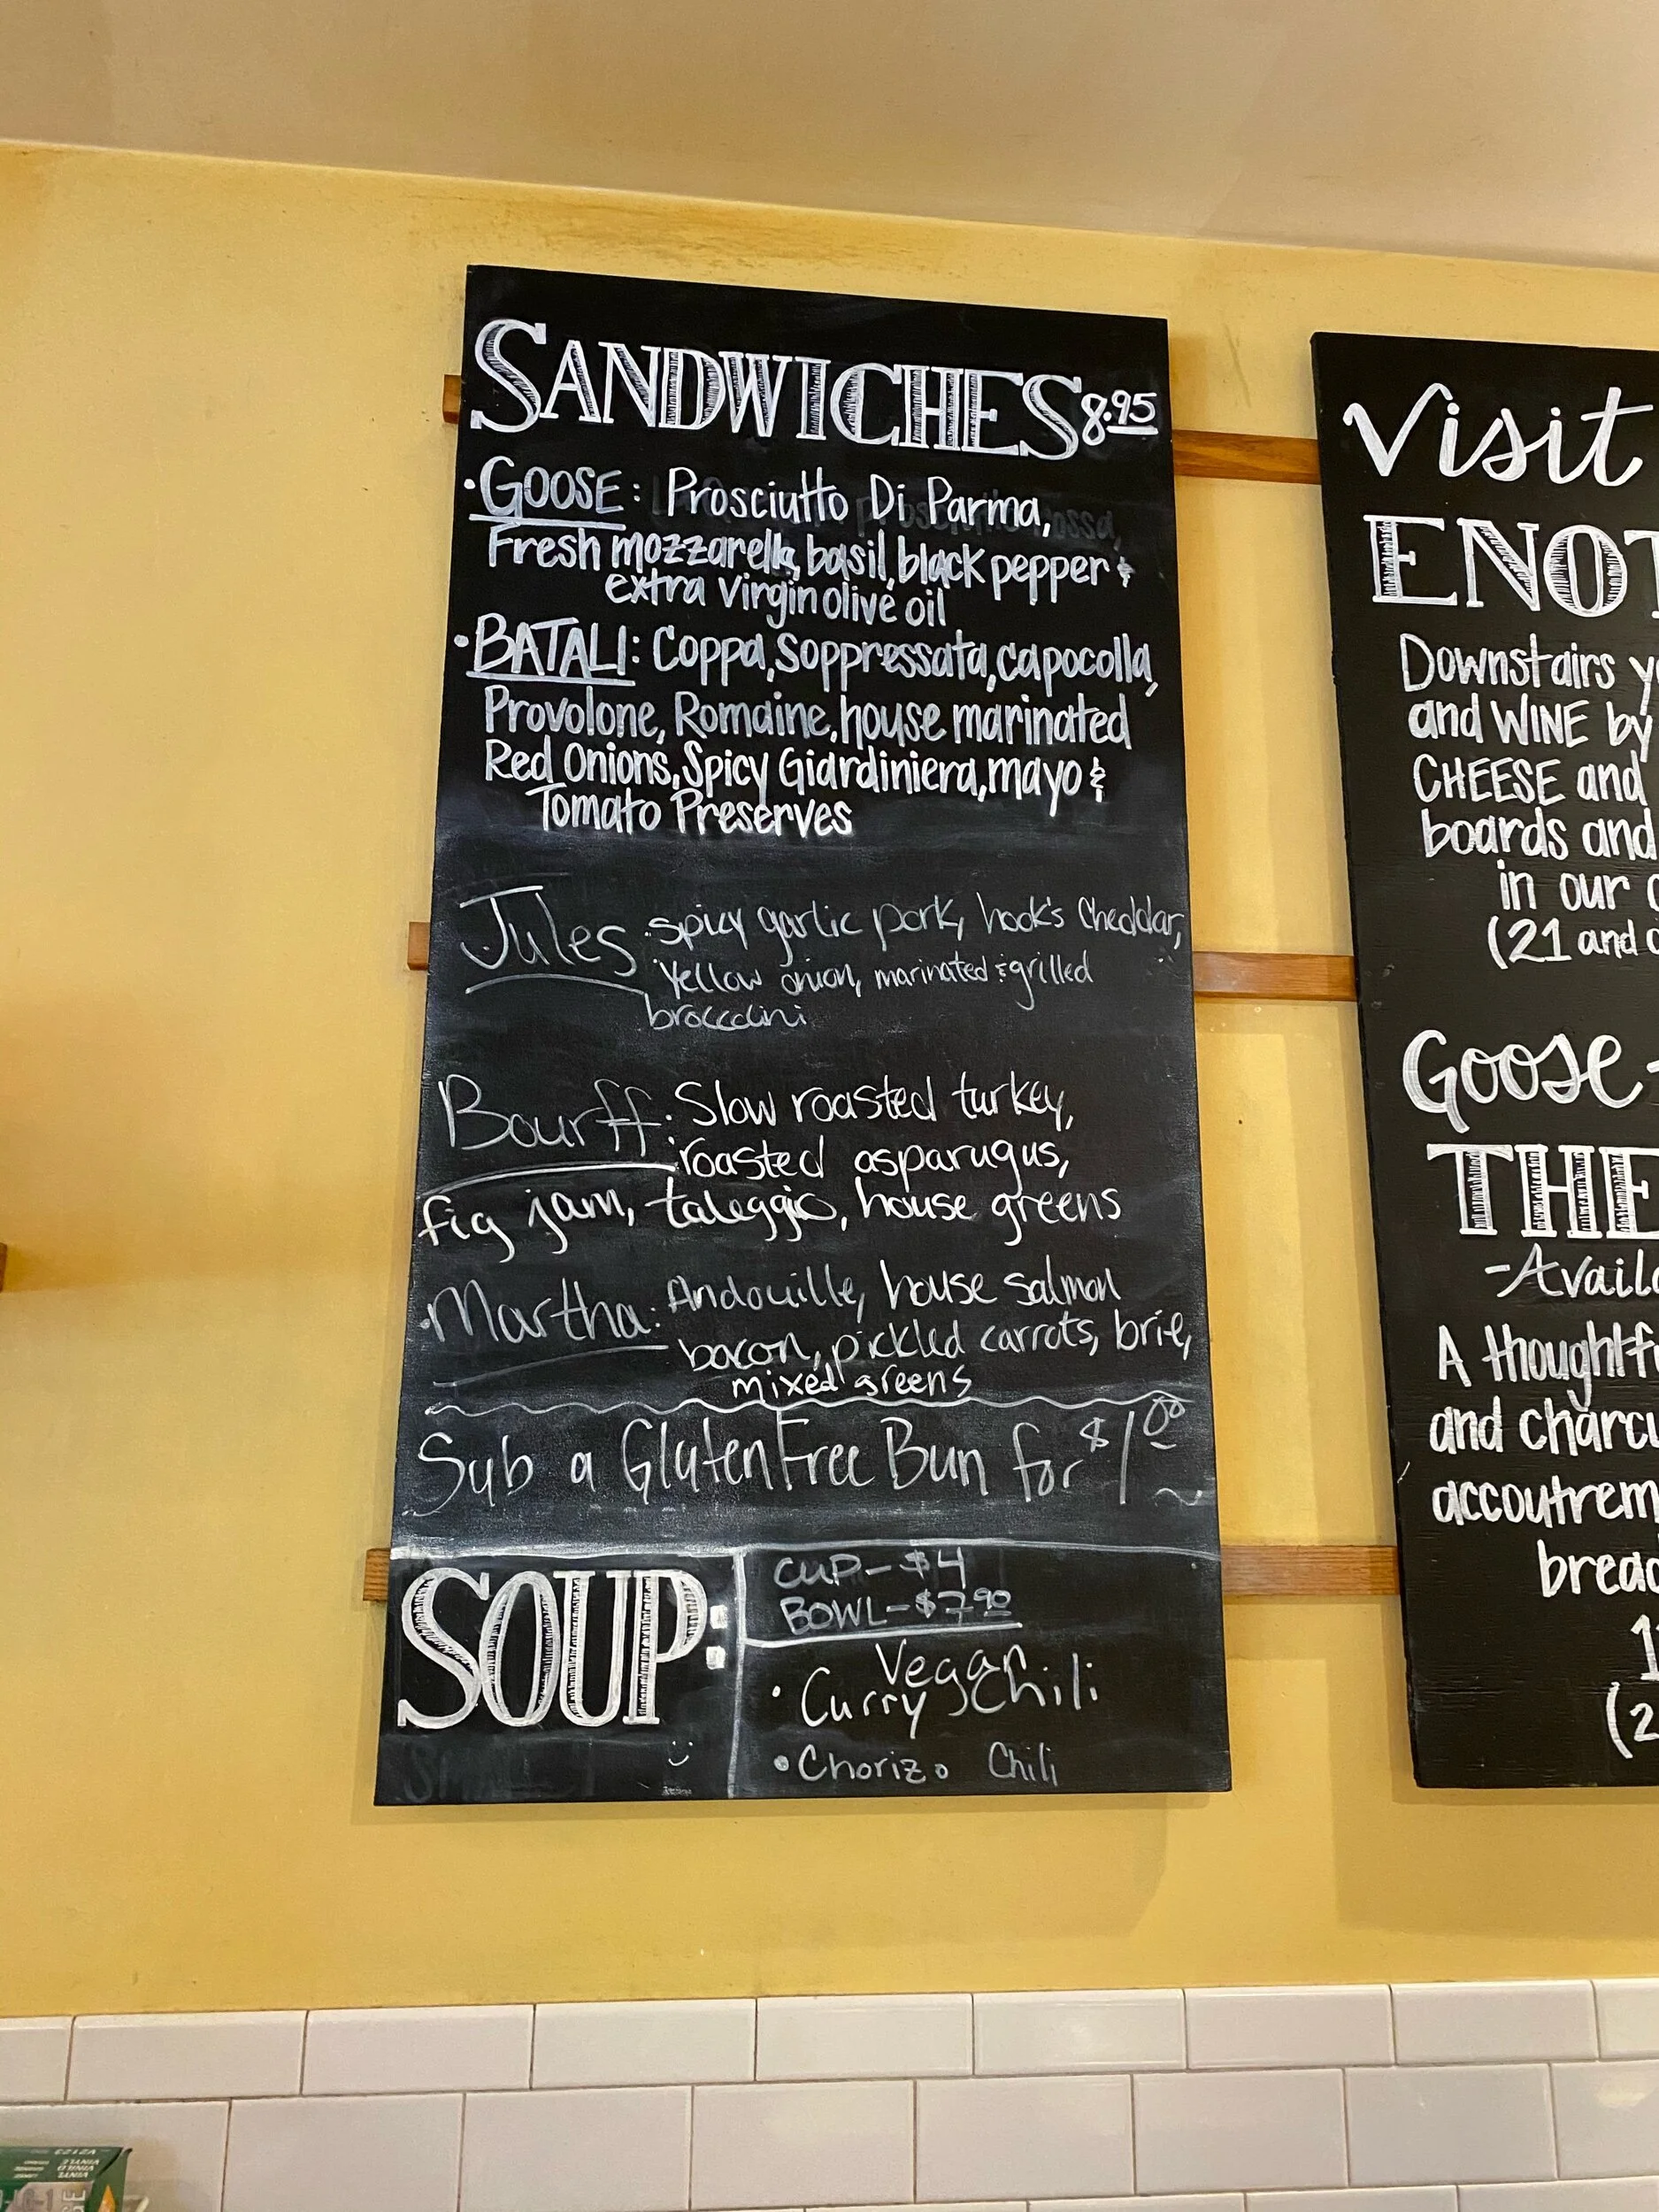 SANDWICHES 8.95
• GOOSE: Prosciutto Di Parma,
Fresh mozzarella, basil, black pepper &
extra virgin olive oil
• BATALI: Coppa, Soppressata, capocolla,
Provolone, Romaine, house marinated
Red Onions, Spicy Giardiniera, mayo &
Tomato Preserves
Jules: spicy garlic pork, hook's Cheddar,
Yellow onion, marinated & grilled
broccolini
Bourff: Slow roasted turkey,
roasted asparugus,
fig jam, taleggio, house greens
• Martha: Andouille, house salmon
bacon, pickled carrots, brie,
mixed greens
Sub a Gluten Free Bun for $1.00
SOUP:
CUP - $4
BOWL - $7.90
Vegan
• Curry Chili
• Chorizo Chili
Visit
ENOT
Downstairs y
and WINE by
CHEESE and
boards and
in our
(21 and
Goose-
THE
-Availa
A thoughtf
and charcu
accoutrem
bread
1
(2